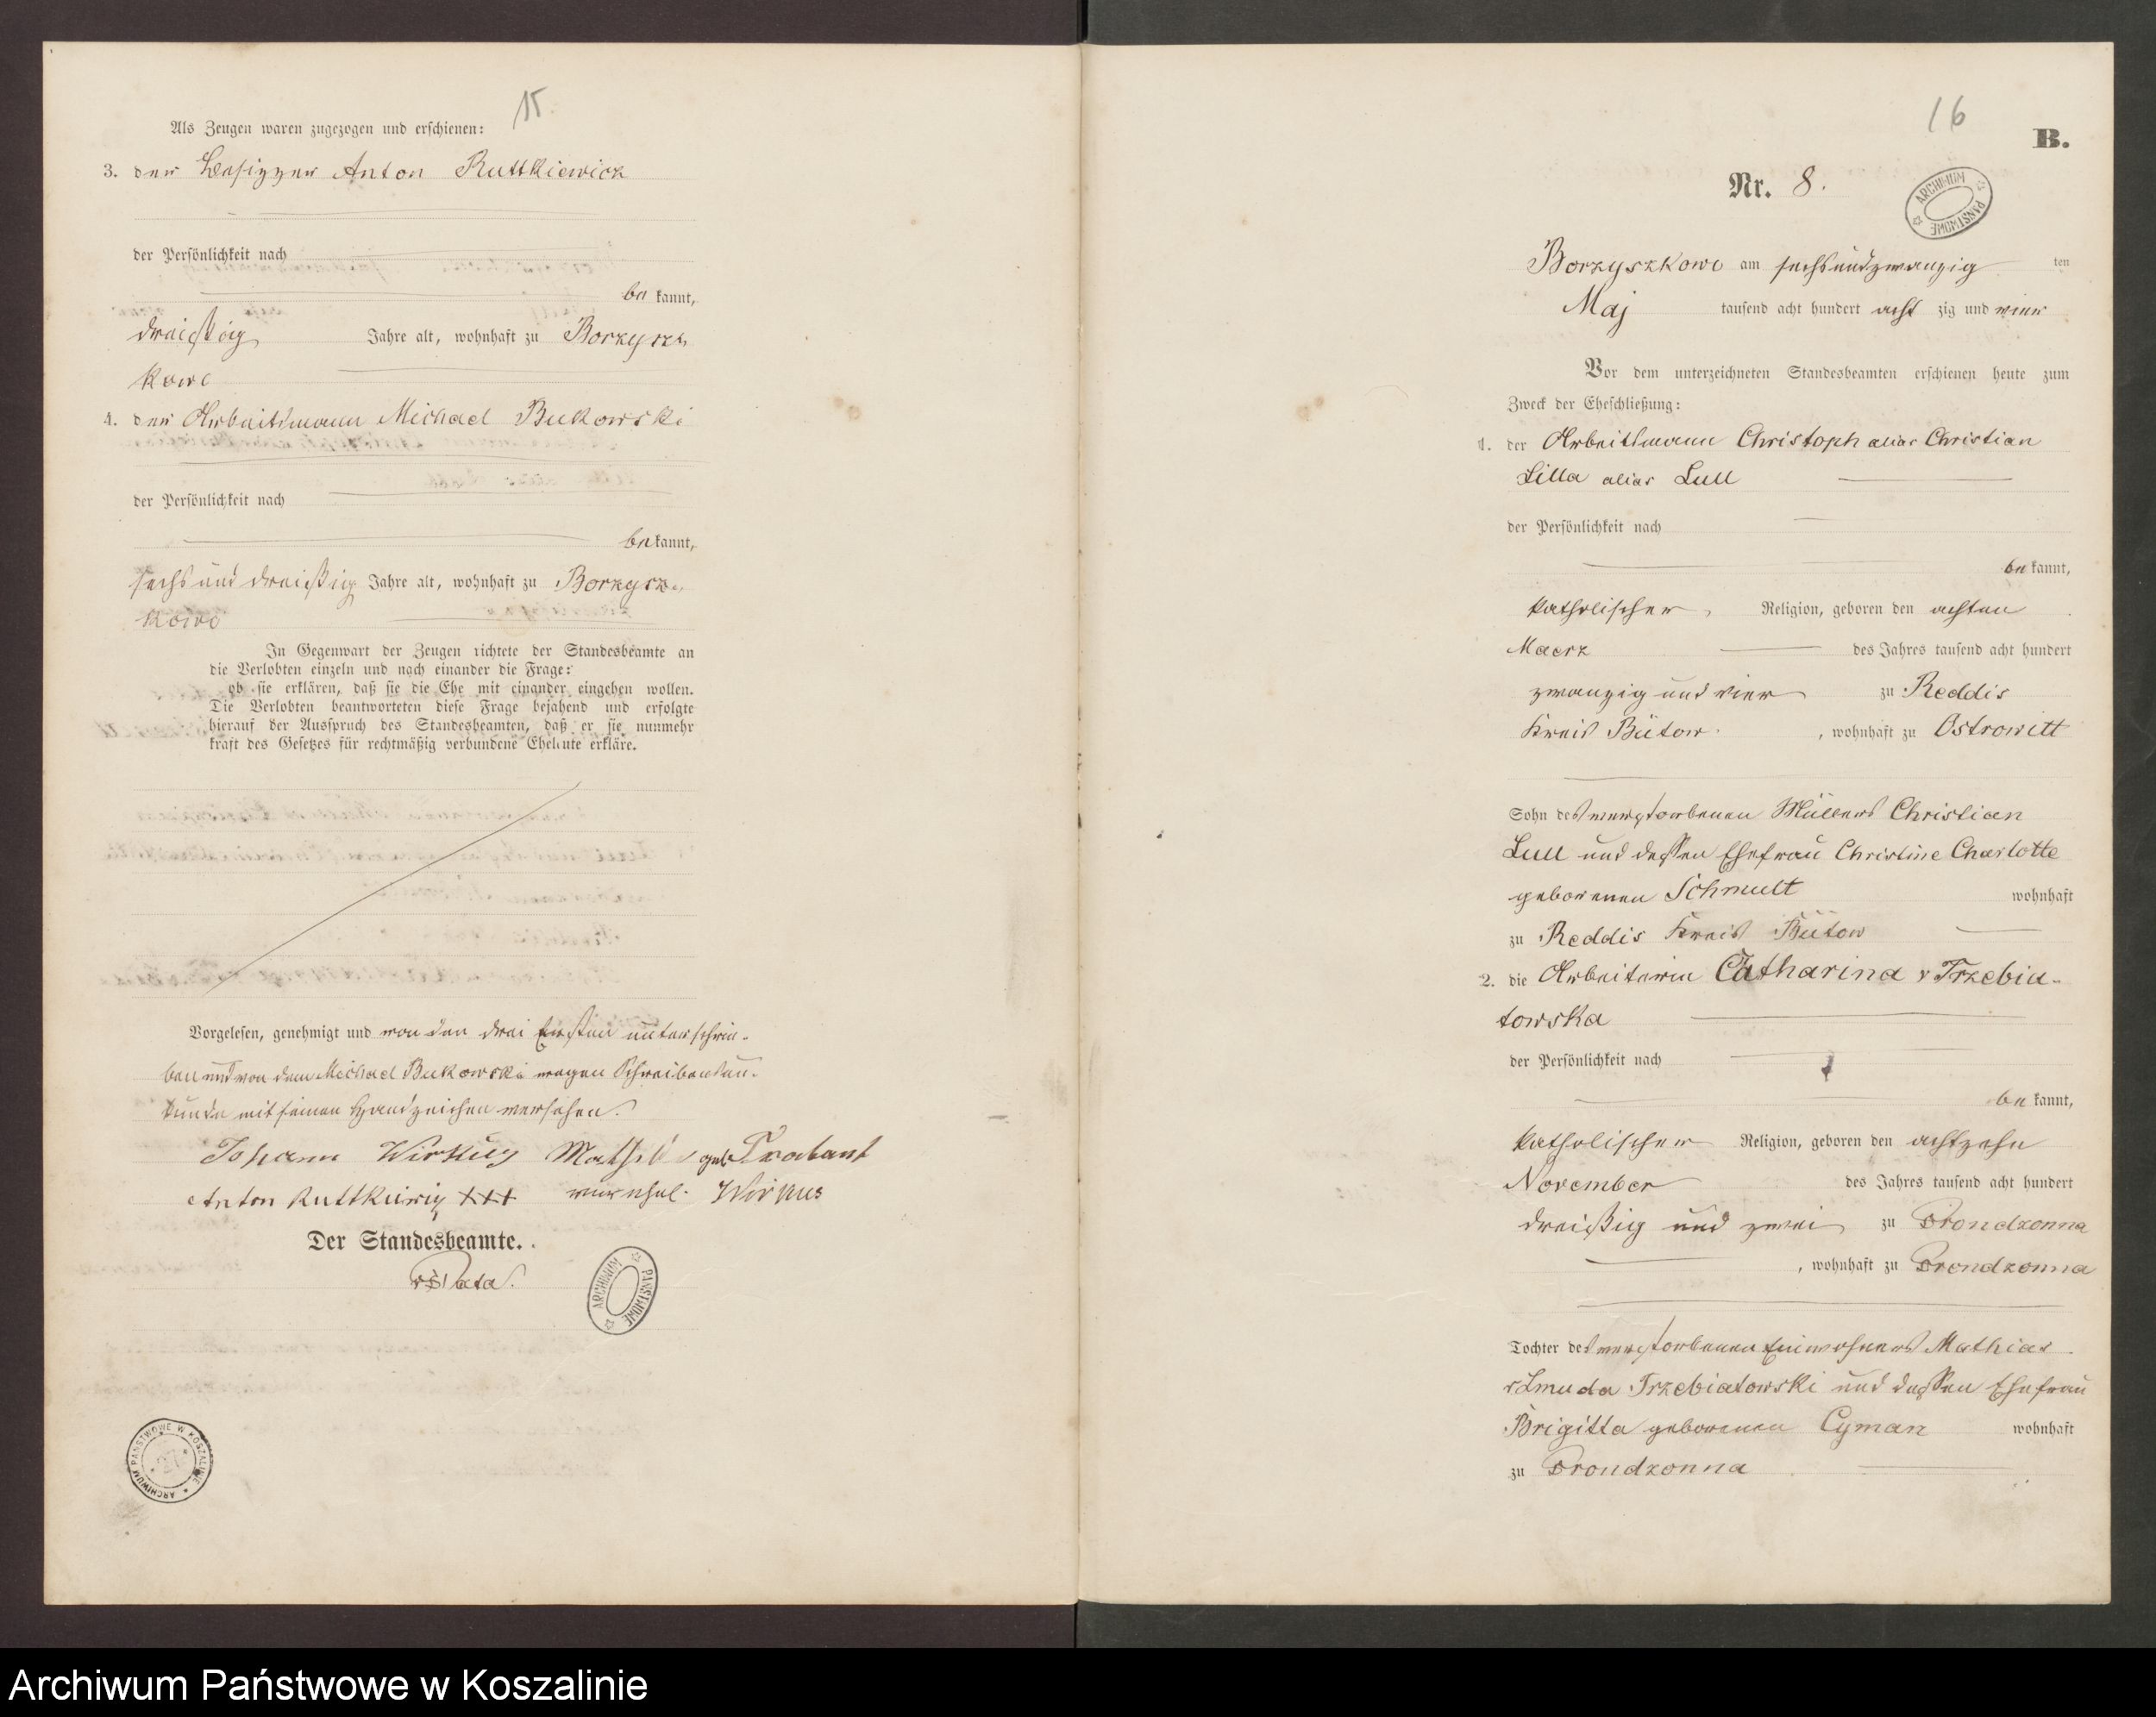 15
Als Zeugen waren zugezogen und erschienen:
3. der Besitzer Anton Ruttkiewicz
der Persönlichkeit nach
be kannt,
dreißig Jahre alt, wohnhaft zu Borzysz-
kowo
4. der Arbeitsmann Michael Bukowski
der Persönlichkeit nach
be kannt,
sechs und dreißig Jahre alt, wohnhaft zu Borzysz-
kowo
In Gegenwart der Zeugen richtete der Standesbeamte an
die Verlobten einzeln und nach einander die Frage:
ob sie erklären, daß sie die Ehe mit einander eingehen wollen.
Die Verlobten beantworteten diese Frage bejahend und erfolgte
hierauf der Ausspruch des Standesbeamten, daß er sie nunmehr
kraft des Gesetzes für rechtmäßig verbundene Eheleute erkläre.
Vorgelesen, genehmigt und von den drei Ersten unterschrie-
ben und von dem Michael Bukowski wegen Schreibensun-
kunde mit seinen Handzeichen versehen.
Johann Wirkus geb Trabant
Anton Ruttkiewicz +++ verehel. Wirkus
Der Standesbeamte.
ARCHIWUM PAŃSTWOWE
ARCHIWUM PAŃSTWOWE W KOSZALINIE
16
B.
Nr. 8.
ARCHIWUM PAŃSTWOWE
Borzyszkowo am sechsundzwanzig ten
Maj tausend acht hundert acht zig und vier
Vor dem unterzeichneten Standesbeamten erschienen heute zum
Zweck der Eheschließung:
1. der Arbeitsmann Christoph alias Christian
Lilla alias Lull
der Persönlichkeit nach
be kannt,
katholischer Religion, geboren den achten
Maerz des Jahres tausend acht hundert
zwanzig und vier zu Reddis
Kreis Bütow , wohnhaft zu Ostrowitt
Sohn des verstorbenen Müllers Christian
Lull und dessen Ehefrau Christine Charlotte
geborenen Schmult wohnhaft
zu Reddis Kreis Bütow
2. die Arbeiterin Catharina v Trzebia-
towska
der Persönlichkeit nach
be kannt,
katholischer Religion, geboren den achtzehn
November des Jahres tausend acht hundert
dreißig und zwei zu Prondzonna
, wohnhaft zu Prondzonna
Tochter des verstorbenen Einwohners Mathias
v Zmuda Trzebiatowski und dessen Ehefrau
Brigitta geborenen Cyman wohnhaft
zu Prondzonna
Archiwum Państwowe w Koszalinie